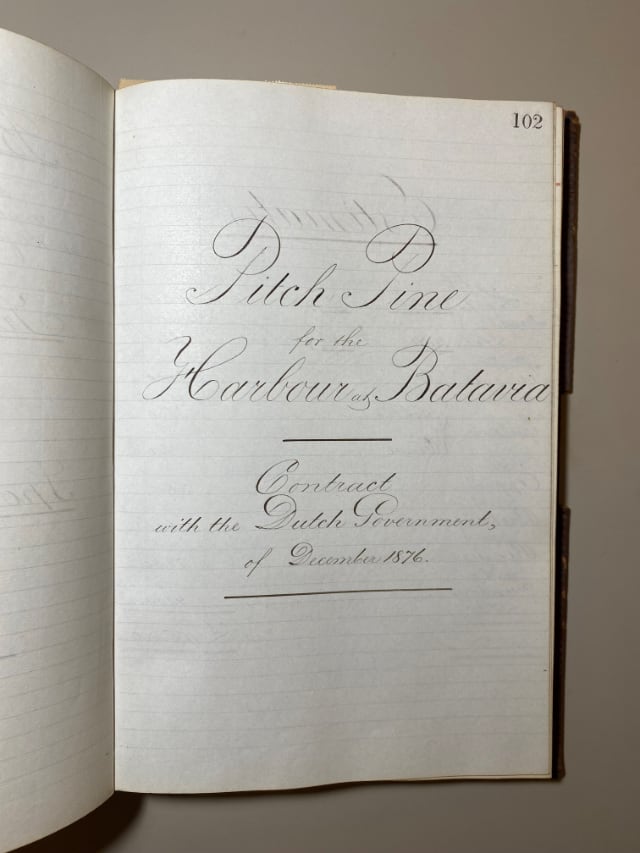 102
Pitch Pine
for the
Harbour at Batavia
Contract
with the Dutch Government,
of December 1876.